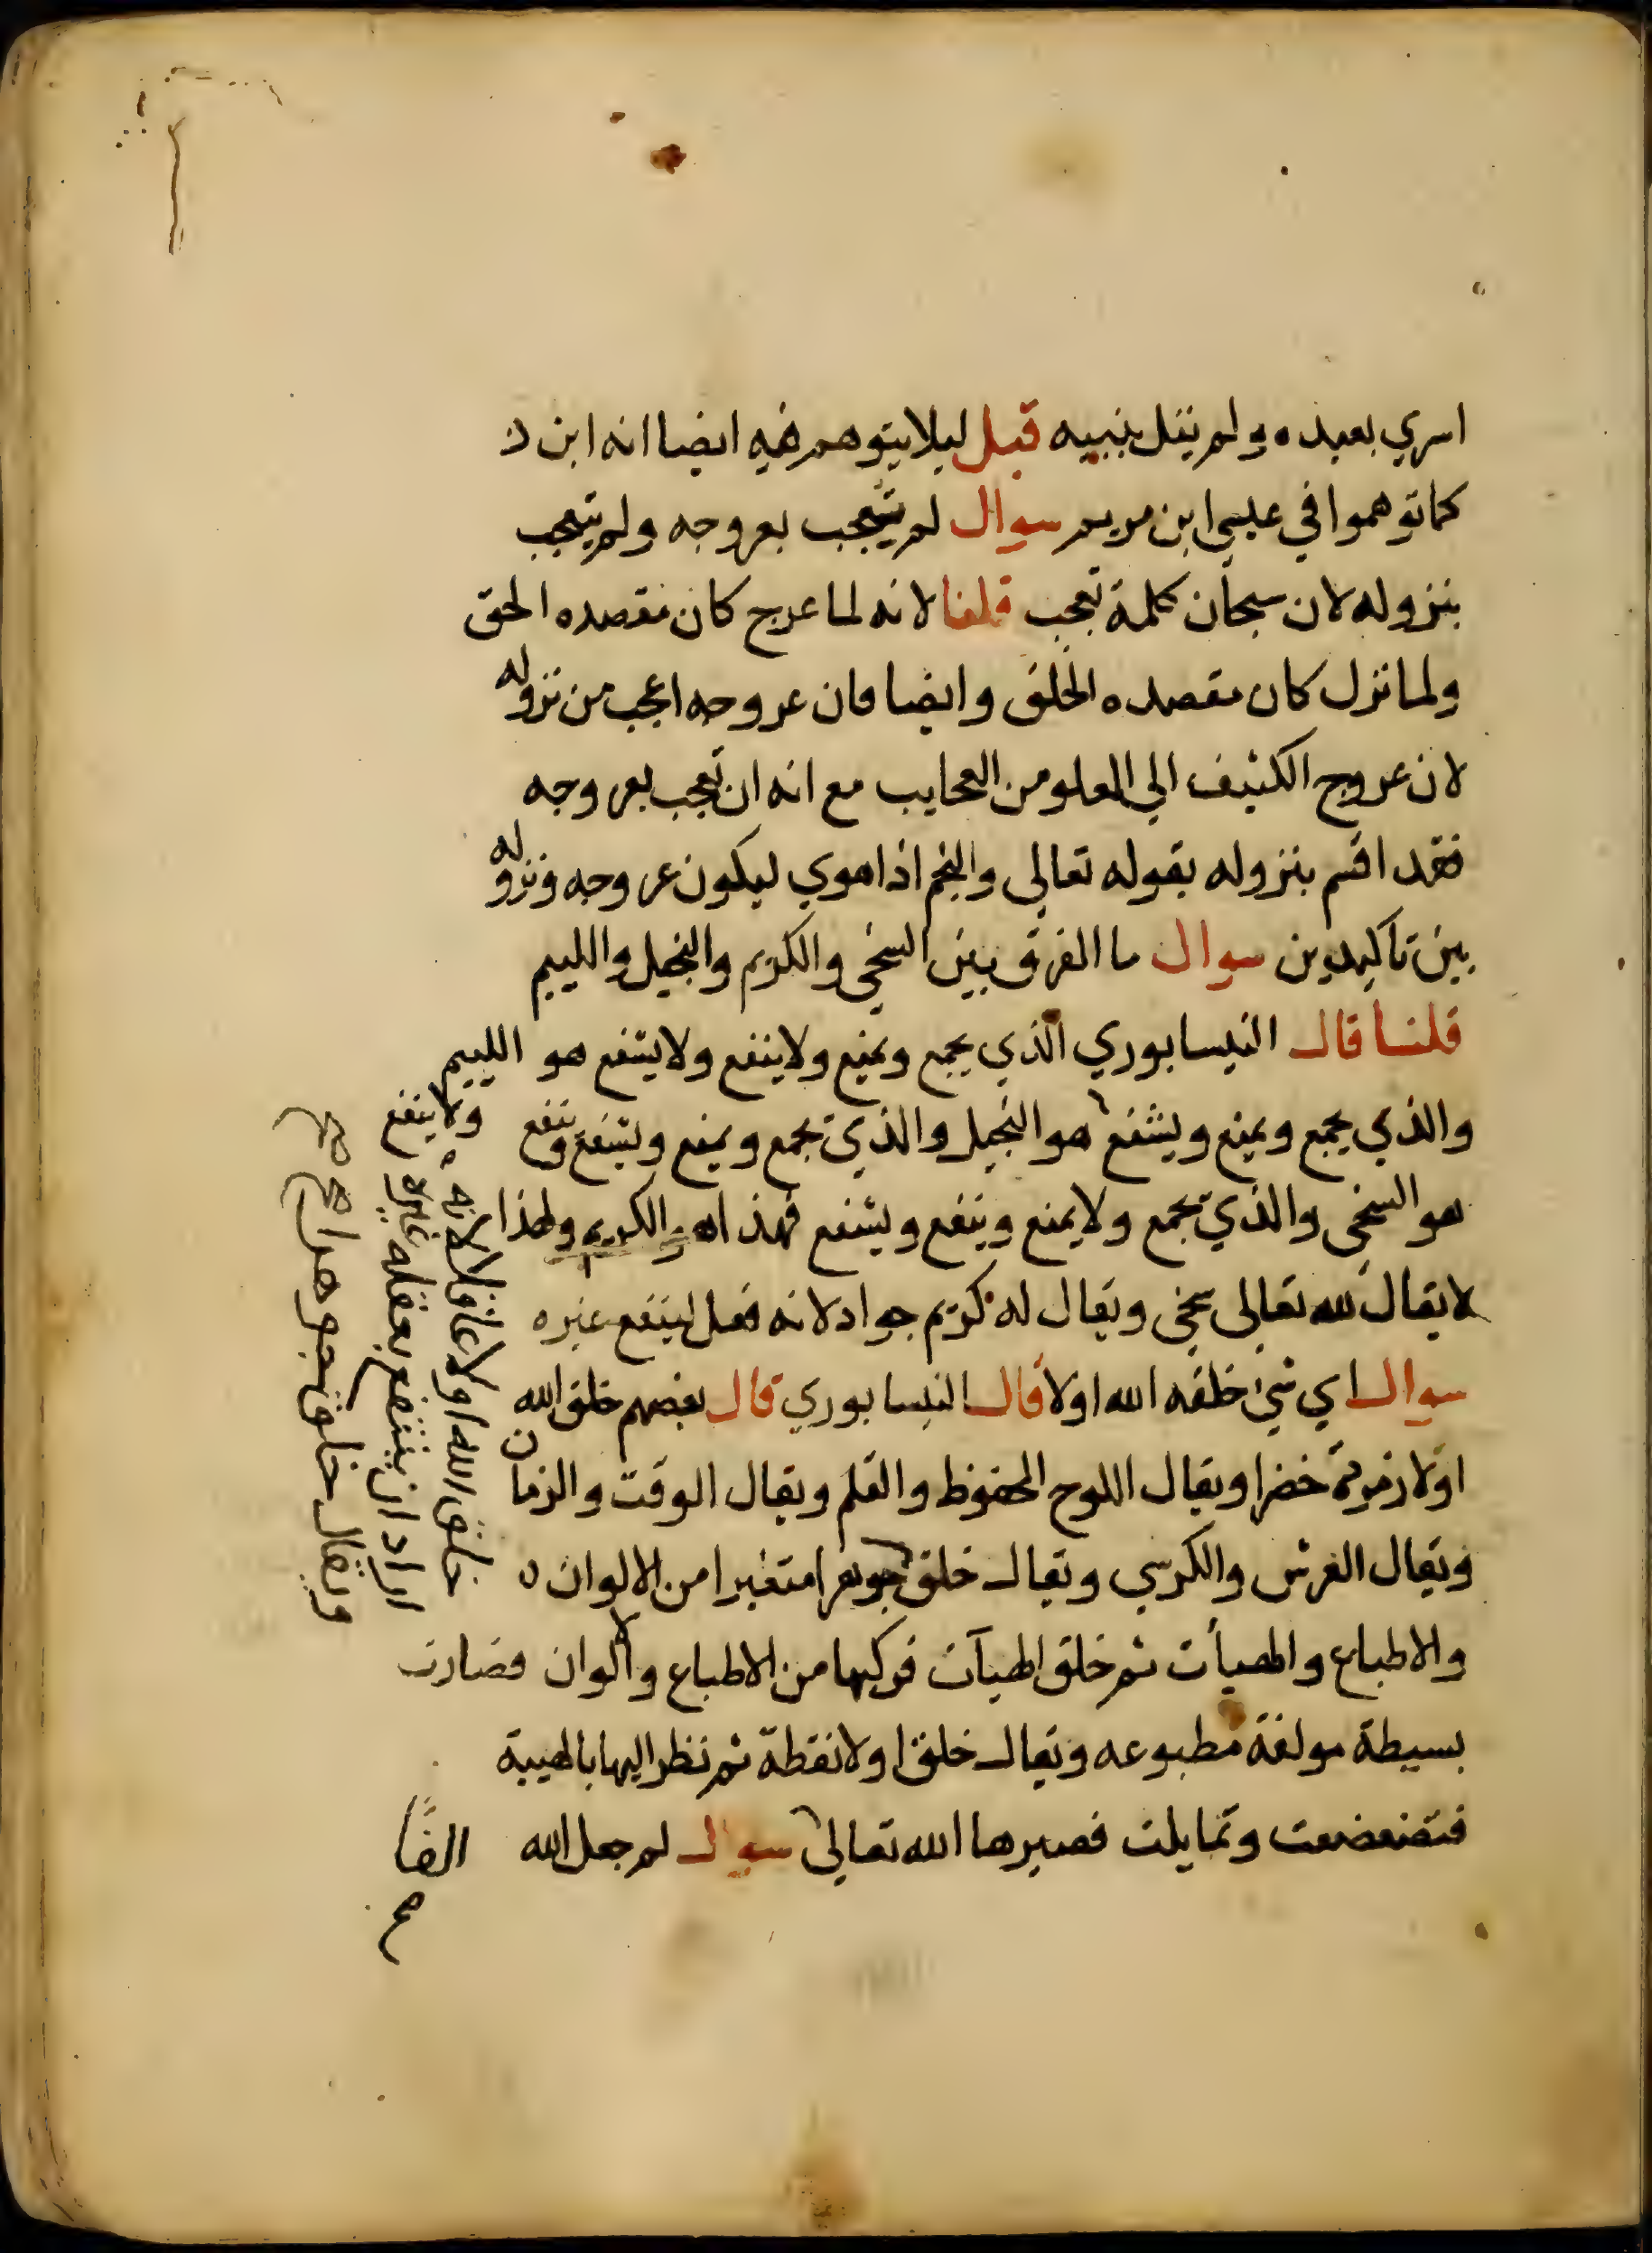 اسري بعبده ولم يقل بنبيه قيل ليلا يتوهم فيه ايضا انه ابن
كما توهموا في عيسي ابن مريم سوال لم يتعجب بعروجه ولم يتعجب
بنزوله لان سبحان كلمة تعجب قلنا لانه لما عرج كان مقصده الحق
ولما نزل كان مقصده الخلق وايضا فان عروجه اعجب من نزوله
لان عروج الكثيف الي العلو من العجايب مع انه ان تعجب بعروجه
فقد اقسم بنزوله بقوله تعالي والنجم اذا هوي ليكون عروجه ونزوله
بين تاكيدين سوال ما الفرق بين السخي والكريم والبخيل واللييم
قلنا قال النيسابوري الذي يجمع ويمنع ولا ينفع ولا ينتفع هو اللييم
والذي يجمع ويمنع وينتفع هو البخيل والذي يجمع ويمنع وينتفع وينفع
ولا ينفع
هو السخي والذي يجمع ولا يمنع وينفع وينتفع فهذا هو الكريم ولهذا
لا يقال لله تعالى سخي ويقال له كريم جواد لانه فعل لينتفع غيره
سوال اي شئ خلقه الله اولا قال النيسابوري قال بعضهم خلق الله
اولا زمردة خضرا ويقال اللوح المحفوظ والقلم ويقال الوقت والزمان
ويقال العرش والكرسي ويقال خلق جوهرا متغيرا من الالوان
والاطباع والهيأت ثم خلق الهيآت فركبها من الاطباع والالوان فصارت
بسيطة مولفة مطبوعه ويقال خلق اولا نقطة ثم نظر اليها بالهيبة
فتضعضعت وتمايلت فصيرها الله تعالى سوال لم جعل الله
الفا
صح
خلق الله اولا عاقلا لانه
اراد ان ينتفع بعقله غيره
ويقال خلق جوهرا صح
صح